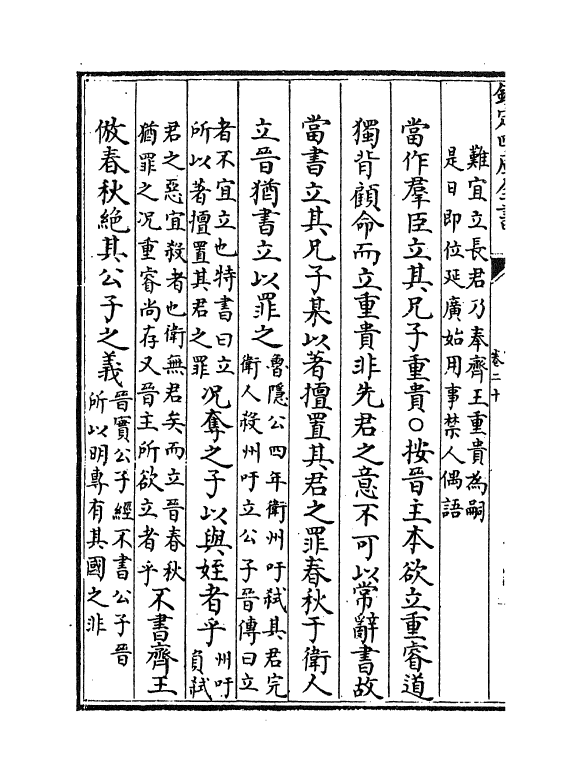 欽定四庫全書
卷二十
難宜立長君乃奉齊王重貴為嗣
是日即位延廣始用事禁人偶語
當作羣臣立其兄子重貴○按晉主本欲立重睿道
獨背顧命而立重貴非先君之意不可以常辭書故
當書立其兄子某以著擅置其君之罪春秋于衛人
立晉猶書立以罪之魯隱公四年衛州吁弑其君完衛人殺州吁立公子晉傳曰立
者不宜立也特書曰立所以著擅置其君之罪况奪之子以與姪者乎州吁負弑
君之惡宜殺者也衛無君矣而立晉春秋猶罪之况重睿尚存又晉主所欲立者乎不書齊王
倣春秋絶其公子之義晉實公子經不書公子晉所以明專有其國之非